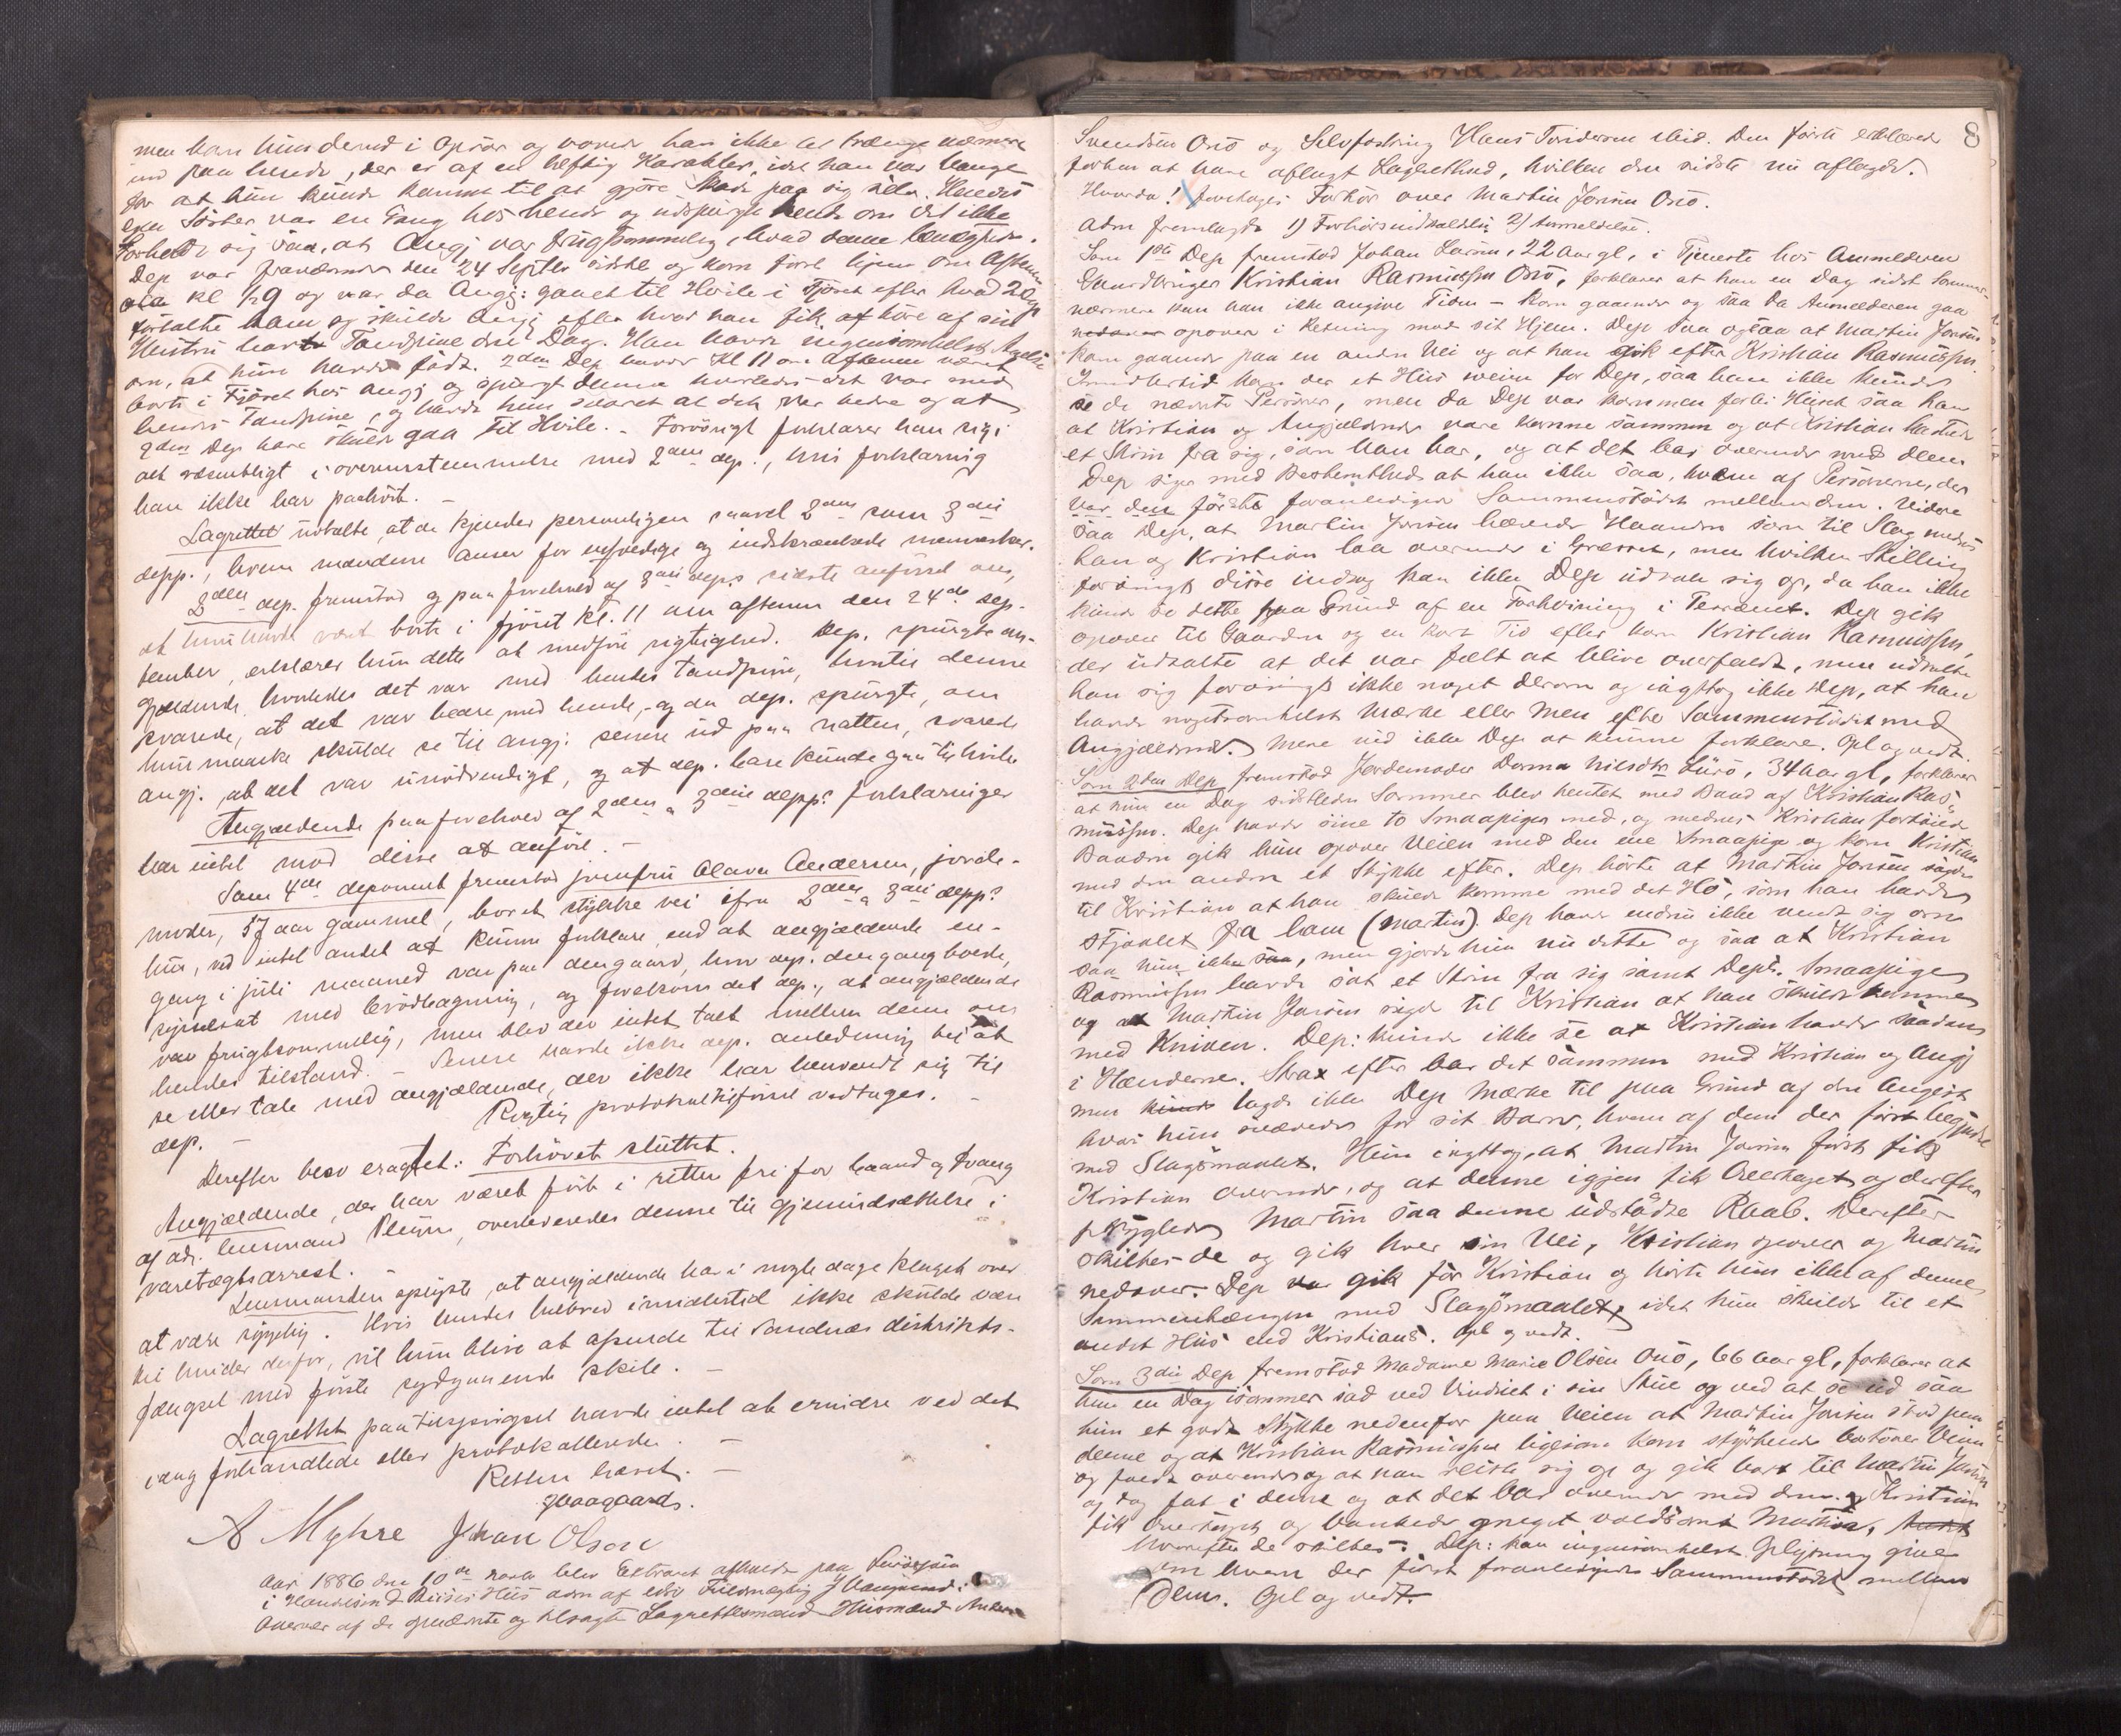 men kom hun derved i Oprør og vovede han ikke at trænge nærmere
ind paa hende, der er af en heftig Karakter, idet han var bange
for at hun kunde komme til at gjøre Skade paa sig selv. Hendes
egen Søster var en Gang hos hende og udspurgte hende om det ikke
forholdt sig saa, at Angj var frugtsommelig, hvad denne benægtede.
Dep var fraværende den 24 Septbr sidstl og kom først hjem om Aftenen
ca kl ½9 og var da Angj: gaaet til Hvile i Fjøset efter hvad 2 Dep
fortalte ham og skulde Angj efter hvad han fik at høre af sin
Hustru havt Tandpine den Dag. Han havde ingensomhelst Anelse
om, at hun havde født. 2den Dep havde Kl 11 om Aftenen været
borte i Fjøset hos Angj og spurgt denne hvorledes det var med
hendes Tandpine, og havde hun svaret at det var bedre og at
2den Dep bare skulde gaa til Hvile. - Forøvrigt forklarer han sig i
alt væsentligt i overensstemmelse med 2den dep., hvis forklaring
han ikke har paahørt. -
Lagrettet udtalte, at de kjender personligen saavel 2den som 3die
depp., hvem mændene anser for enfoldige og indskrænkede mennesker.
2den dep. fremstod og paa forehold af 3die deps sidste anførsel om,
at hun havde været borte i fjøset kl. 11 om aftenen den 24de sep-
tember, erklærer hun dette at medføre rigtighed. Dep. spurgte an-
gjældende hvorledes det var med hendes tandpine, hvortil denne
svarede, at det var bedre med hende, - og da dep. spurgte, om
hun maaske skulde se til angj. senere ud paa natten, svarede
angj. at det var unødvendigt, og at dep. bare kunde gaa til hvile
Angjældende paa forehold af 2den & 3die depps forklaringer
har intet mod disse at anføre. -
Som 4de deponent fremstod jomfru Olava Andersen, jorde-
moder, 57 aar gammel, boret stykke vei ifra 2den & 3die depps
hus, ved intet andet at kunne forklare, end at angjældende en-
gang i juli maaned var paa den gaard, hvor dep. dengang boede,
sysselsat med brødbagning, og forekom det dep., at angjældende
var frugtsommelig, men blev der intet talt mellem dem om
hendes tilstand. - Senere havde ikke dep. anledning til at
se eller tale med angjældende, der ikke har henvendt sig til
dep. - Rigtig protokoltilførsel vedtages. -
Derefter blev eragtet: Forhøret sluttet.
Angjældende, der har været ført i retten fri for baand og tvang
af adj. lensmand Pleym, overleveredes denne til gjenindsættelse i
varetægtsarrest. -
Lensmanden oplyste, at angjældende har i nogle dage klaget over
at være sygelig. Hvis hendes helbred imidlertid ikke skulde være
til hinder derfor, vil hun blive at afsende til Sandnæs distrikts-
fængsel med første sydgaaende skib. -
Lagrettet paa tilspørgsel havde intet at erindre ved det
idag forhandlede eller protokollerede. -
Retten hævet. -
Haagaard.
A Myhre Johan Olsen
Aar 1886 den 10de blev Extraret afholdt paa Lurøgaard
i Huus adm af
Overvær af de opnævnte og tilsagte Lagrettesmænd Husmænd Anders
8
Svendsen Onø og Selvfostring Hans ibid. Den første erklærede
forhen at have aflagt Lagretteed, hvilken den sidste nu aflagde.
Hvorda! foretages Forhør over Martin Jonsen Onø.
Adm fremlagde 1) 2) Anmeldelse.
Som 1ste Dep fremstod Johan Larsen, 22 Aar gl, i Tjeneste hos Anmelderen
Gaardbruger Kristian Rasmussen Onø, forklarer at han en Dag sidst Sommer -
nærmere kan han ikke angive Tiden - kom gaaende og saa da Anmelderen gaa
opover i Retning mod sit Hjem. Dep saa ogsaa at Martin Jonsen
kom gaaende paa en anden Vei og at han gik efter Kristian Rasmussen.
Imidlertid kom der et Hus iveien for Dep, saa han ikke kunde
se de nævnte Personer, men da Dep var kommen forbi Huset saa han
at Kristian og Angjældende vare komne sammen og at Kristian kastede
et Skrin fra sig, som han bar, og at det bar overende med dem
Dep siger med Bestemthed at han ikke saa, hvem af Personerne, der
var den første foranlediger Sammenstødet mellem dem. Videre
saa Dep, at Martin Jonsen hævede Haanden som til Slag medens
han og Kristian laa overende i Græsset, men hvilken Stilling
forøvrigt disse indtog kan ikke Dep udtale sig og, da han ikke
kunde se dette paa Grund af en Forhøining i Terrænet. Dep gik
opover til Gaarden og en kort Tid efter kom Kristian Rasmussen,
der udtalte at det var fælt at blive overfaldt, men udtalte
han sig forøvrigt ikke noget derom og iagttog ikke Dep, at han
havde nogetsomhelst Mærke eller Men efter Sammenstødet med
Angjældende. Mere ved ikke Dep at kunne forklare. Opl og vedt.
Som 2den Dep fremstod Jordemoder Dorma Nilsdtr Lurø, 34 Aar gl, forklarer
at hun en Dag sidstleden Sommer blev hentet med Baad af Kristian Ras-
mussen. Dep havde sine to Smaapiger med, og medens Kristian fortøiede
Baaden gik hun opover Veien med den ene Smaapige og kom Kristian
med den anden et Stykke efter. Dep hørte at Martin Jonsen sagde
til Kristian at han skulde komme med det Hø, som han havde
stjaalet fra ham (Martin). Dep havde endnu ikke vendt sig om
saa hun ikke saa, men gjorde hun nu dette og saa at Kristian
Rasmussen havde sat et Skrin fra sig samt Deps. Smaapige
og at Martin Jonsen sagde til Kristian at han skulde komme
med Kniven. Dep: kunde ikke se at Kristian havde saadan
i Hænderne. Strax efter bar det sammen med Kristian og Angj
men kunde lagde ikke Dep Mærke til paa Grund af den Angest
hvori hun svævede for sit Barn, hvem af dem der først begyndte
med Slagsmaalet. Hun iagttog, at Martin Jonsen først fik
Kristian overende, og at denne igjen fik Overtaget og derefter
pryglede Martin saa denne udstødte Raab. Derefter
skiltes de og gik hver sin Vei, Kristian opover og Martin
nedover. Dep var gik før Kristian og hørte hun ikke af denne
Sammenhængen med Slagsmaalet, idet hun skulde til et
andet Hus end Kristians. Opl og vedt.
Som 3die Dep fremstod Madame Marie Olsen Onø, 66 Aar gl, forklarer at
hun en Dag isommer sad ved Vinduet i sin Stue og ved at se ud saa
hun et godt Stykke nedenfor paa Veien at Martin Jonsen stod paa
denne og at Kristian Rasmussen ligesom kom styrtende bortover Veien
og faldt overende og at han reiste sig op og gik bort til Martin Jonsen
og tog fat i denne og at det bar overende med dem. og Kristian
fik Overtaget og bankede meget voldsomt Martin,
hvorefter de skiltes. Dep: kan ingensomhelst Oplysning give
om hvem der først foranledigede Sammenstødet mellem
dem. Opl og vedt.